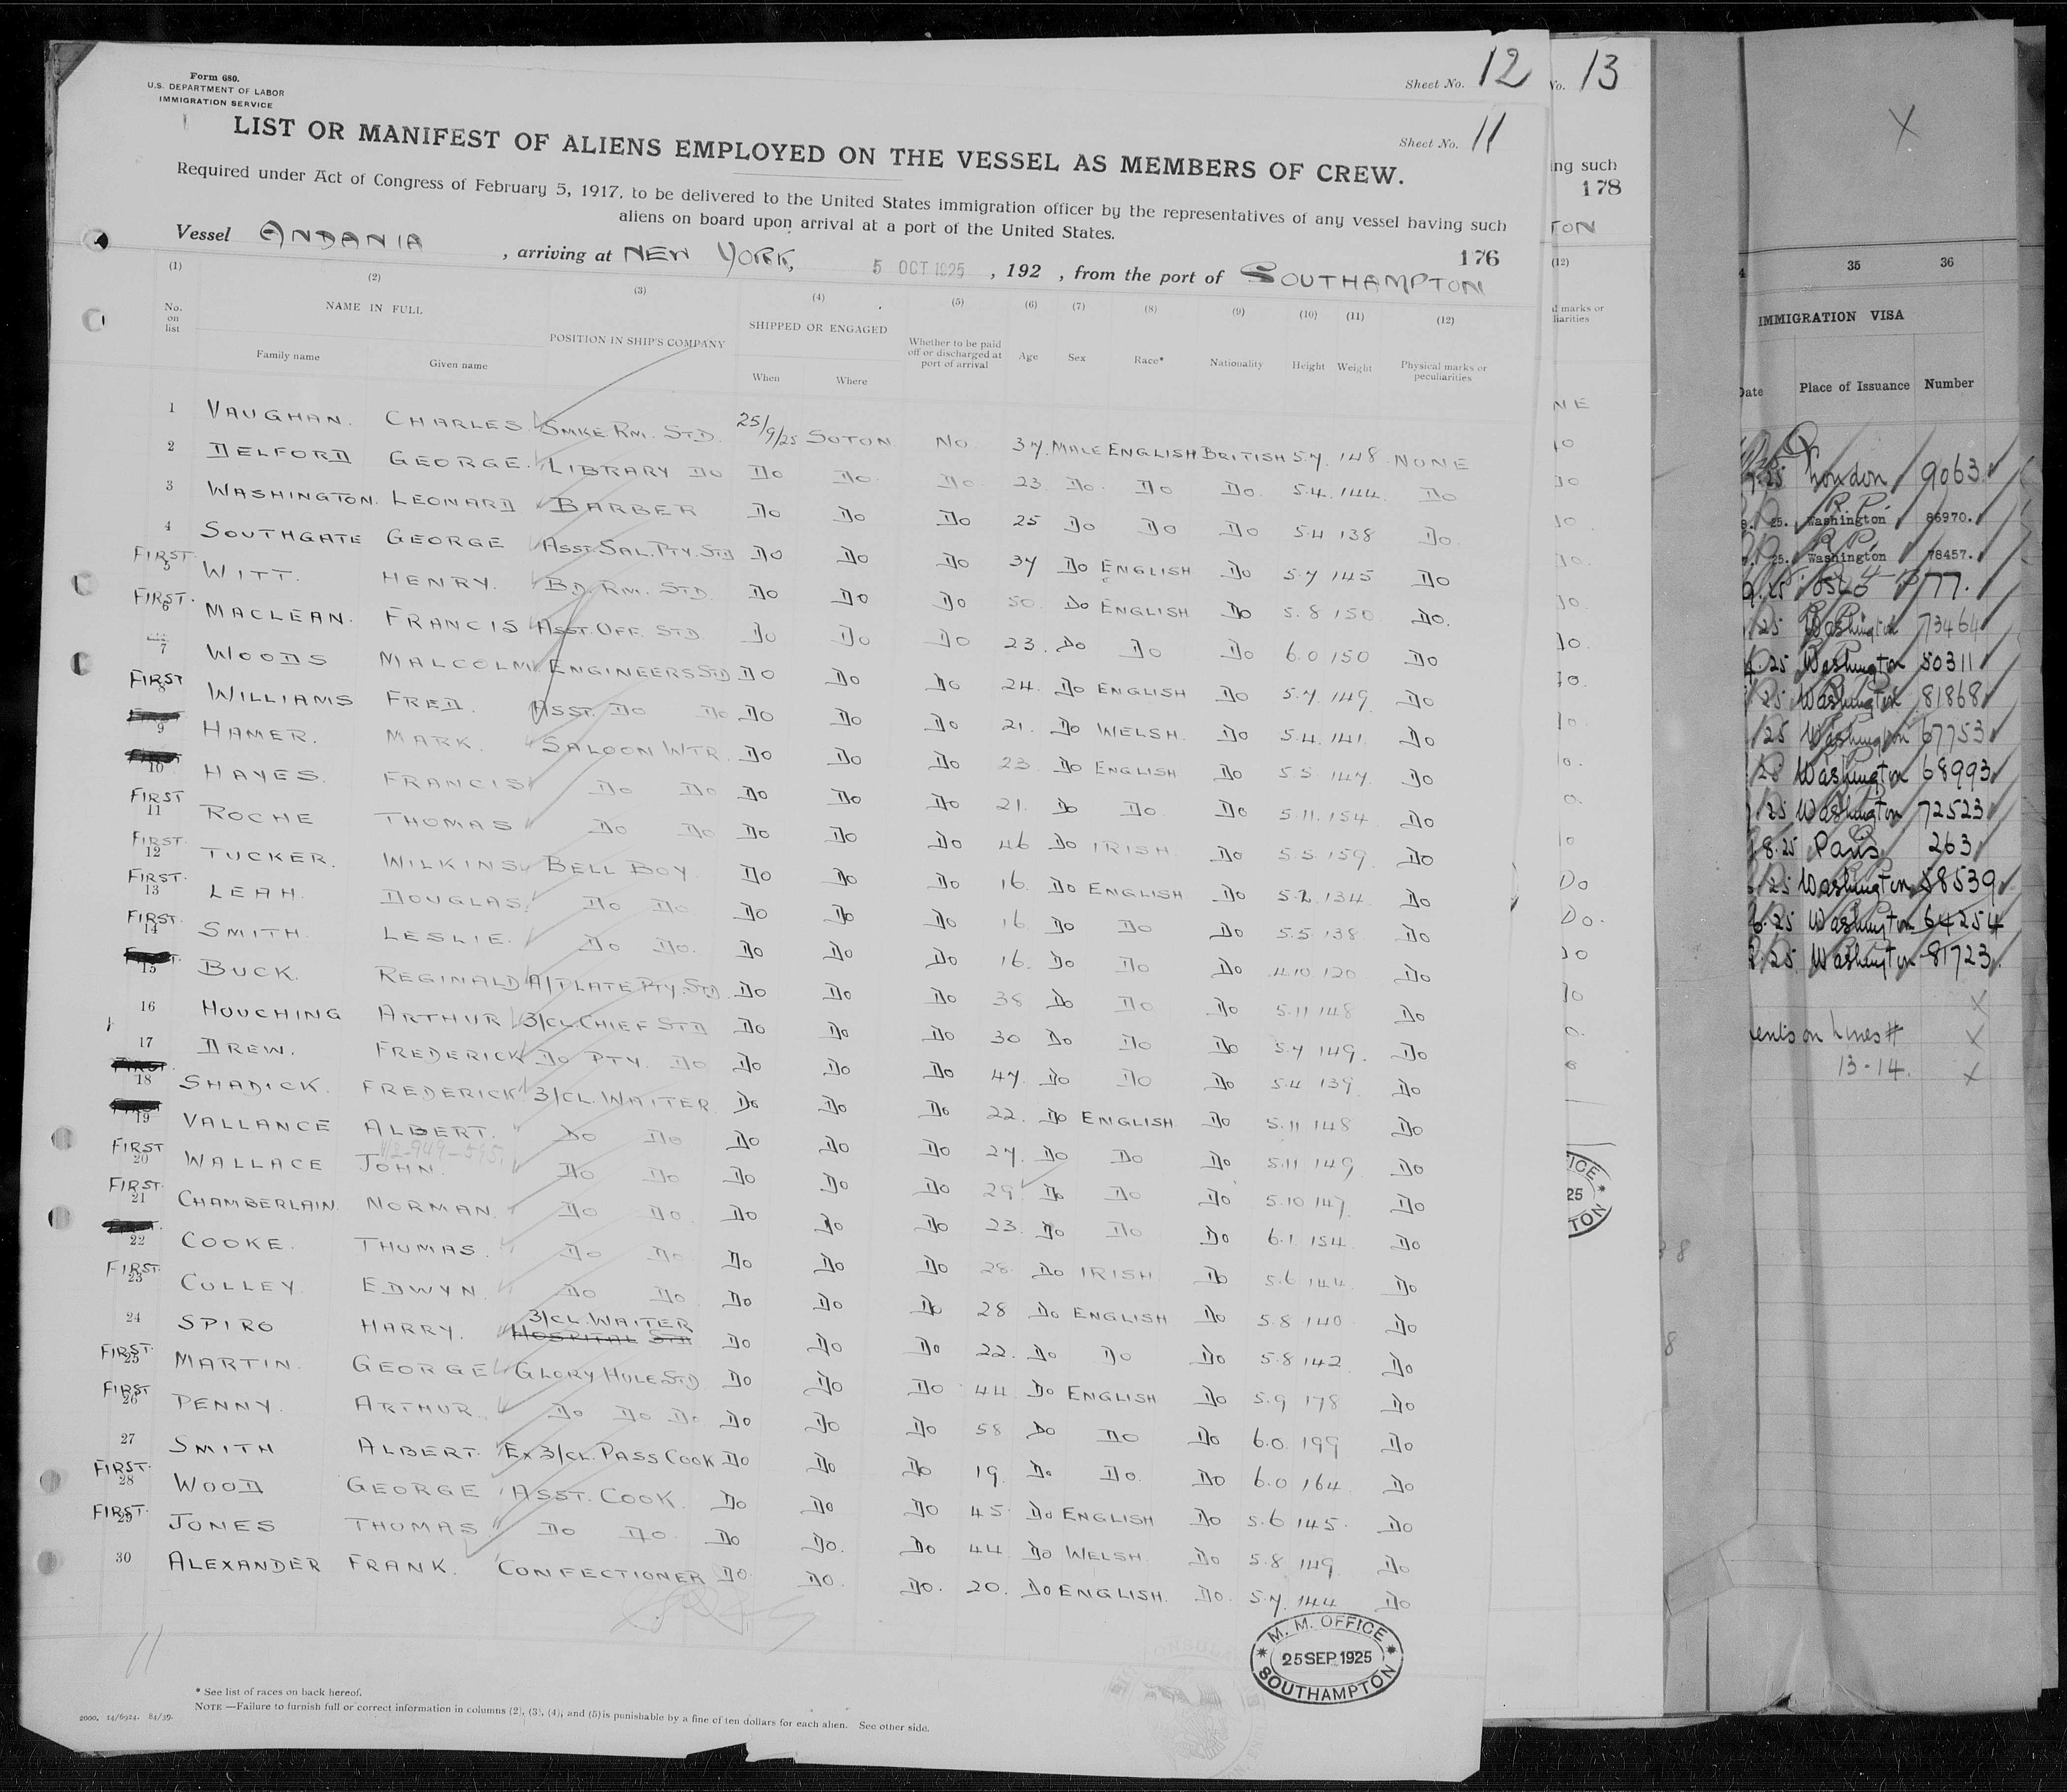 Form 680.
U.S. DEPARTMENT OF LABOR
IMMIGRATION SERVICE
Sheet No. 12
No. 13
Sheet No. 11
LIST OR MANIFEST OF ALIENS EMPLOYED ON THE VESSEL AS MEMBERS OF CREW.
Required under Act of Congress of February 5, 1917, to be delivered to the United States immigration officer by the representatives of any vessel having such
aliens on board upon arrival at a port of the United States.
ing such
178
TON
176
Vessel ANDANIA, arriving at NEW YORK, 5 OCT 1925, 192 , from the port of SOUTHAMPTON
(1) (2) (3) (4) (5) (6) (7) (8) (9) (10) (11) (12)
No. on list NAME IN FULL POSITION IN SHIP'S COMPANY SHIPPED OR ENGAGED Whether to be paid off or discharged at port of arrival Age Sex Race* Nationality Height Weight Physical marks or peculiarities
Family name Given name When Where
1 VAUGHAN. CHARLES. SMKE RM. STD. 25/9/25 SOTON NO 37. MALE ENGLISH BRITISH 5.7. 148 NONE
2 DELFORD GEORGE. LIBRARY DO DO DO. DO. 23. DO. DO DO. 5.4. 144. DO
3 WASHINGTON. LEONARD BARBER DO DO DO 25 DO DO DO 5.4 138 DO.
4 SOUTHGATE GEORGE ASST. SAL. PTY. STD DO DO DO 37 DO ENGLISH DO 5.7 145 DO
FIRST. 5 WITT. HENRY. BD. RM. STD. DO DO DO 50. DO ENGLISH DO 5.8 150 DO.
FIRST. 6 MACLEAN. FRANCIS ASST. OFF. STD DO DO DO 23. DO DO DO 6.0 150 DO
7 WOODS MALCOLM ENGINEERS STD DO DO DO 24. DO ENGLISH DO 5.7. 149. DO
FIRST 8 WILLIAMS FRED. ASST. DO DO DO DO DO 21. DO WELSH. DO 5.4. 141. DO
9 HAMER. MARK. SALOON WTR. DO DO DO 23 DO ENGLISH DO 5.5. 147. DO
10 HAYES. FRANCIS DO DO DO DO DO 21. DO DO. DO 5.11. 154 DO
FIRST 11 ROCHE THOMAS DO DO DO DO DO 46 DO IRISH DO 5.5. 159. DO
FIRST. 12 TUCKER. WILKINS BELL BOY. DO DO DO 16. DO ENGLISH. DO 5.2. 134. DO
FIRST. 13 LEAH. DOUGLAS. DO DO. DO DO DO 16 DO DO DO 5.5. 138. DO
FIRST. 14 SMITH. LESLIE. DO DO. DO DO DO 16. DO DO DO 4.10 120 DO
15 BUCK. REGINALD A/PLATE PTY. STD. DO DO DO 38 DO DO DO 5.11 148 DO
16 HOUCHING ARTHUR 3/CL. CHIEF STD DO DO DO 30 DO DO DO 5.7 149. DO
17 DREW. FREDERICK DO PTY. DO DO DO DO 47. DO DO DO 5.4 139. DO
18 SHADICK. FREDERICK 3/CL. WAITER DO DO DO 22. DO ENGLISH DO 5.11 148 DO
19 VALLANCE ALBERT. DO DO DO DO DO 27. DO DO DO 5.11 149. DO
FIRST 20 WALLACE JOHN. DO DO DO DO DO 29 DO DO DO 5.10 147 DO
FIRST. 21 CHAMBERLAIN. NORMAN. DO DO. DO DO DO 23. DO DO DO 6.1. 154. DO
22 COOKE. THOMAS. DO DO DO DO DO 28. DO IRISH DO 5.6 144. DO
FIRST. 23 CULLEY. EDWYN. DO DO. DO DO DO 28 DO ENGLISH DO 5.8 140 DO
24 SPIRO HARRY. 3/CL. WAITER HOSPITAL STD DO DO DO 22. DO DO DO 5.8 142. DO
FIRST. 25 MARTIN. GEORGE GLORY HOLE STD DO DO DO 44 DO ENGLISH DO 5.9 178 DO
FIRST 26 PENNY. ARTHUR. DO DO DO DO DO DO 58 DO DO DO 6.0. 199 DO
27 SMITH ALBERT. EX 3/CL. PASS COOK DO DO DO 19. DO DO. DO 6.0 164. DO
FIRST. 28 WOOD GEORGE ASST. COOK. DO DO DO 45. DO ENGLISH DO 5.6 145. DO
FIRST. 29 JONES THOMAS. DO DO. DO DO. DO 44 DO WELSH. DO 5.8. 149. DO
30 ALEXANDER FRANK. CONFECTIONER DO. DO. DO. 20. DO ENGLISH. DO. 5.7. 144 DO
11
M. M. OFFICE
25 SEP 1925
SOUTHAMPTON
* See list of races on back hereof.
NOTE —Failure to furnish full or correct information in columns (2), (3), (4), and (5) is punishable by a fine of ten dollars for each alien. See other side.
2000. 14/6924. 84/39.
35 36
IMMIGRATION VISA
Date Place of Issuance Number
London 9063
25. Washington 86970.
25. Washington 78457.
25 Washington 73464
25 Washington 50311
25 Washington 81868
25 Washington 67753
Washington 68993
25 Washington 72523
8.25 Paris 263
25 Washington 58539
25 Washington 64254
25 Washington 81723.
on lines #
13-14.